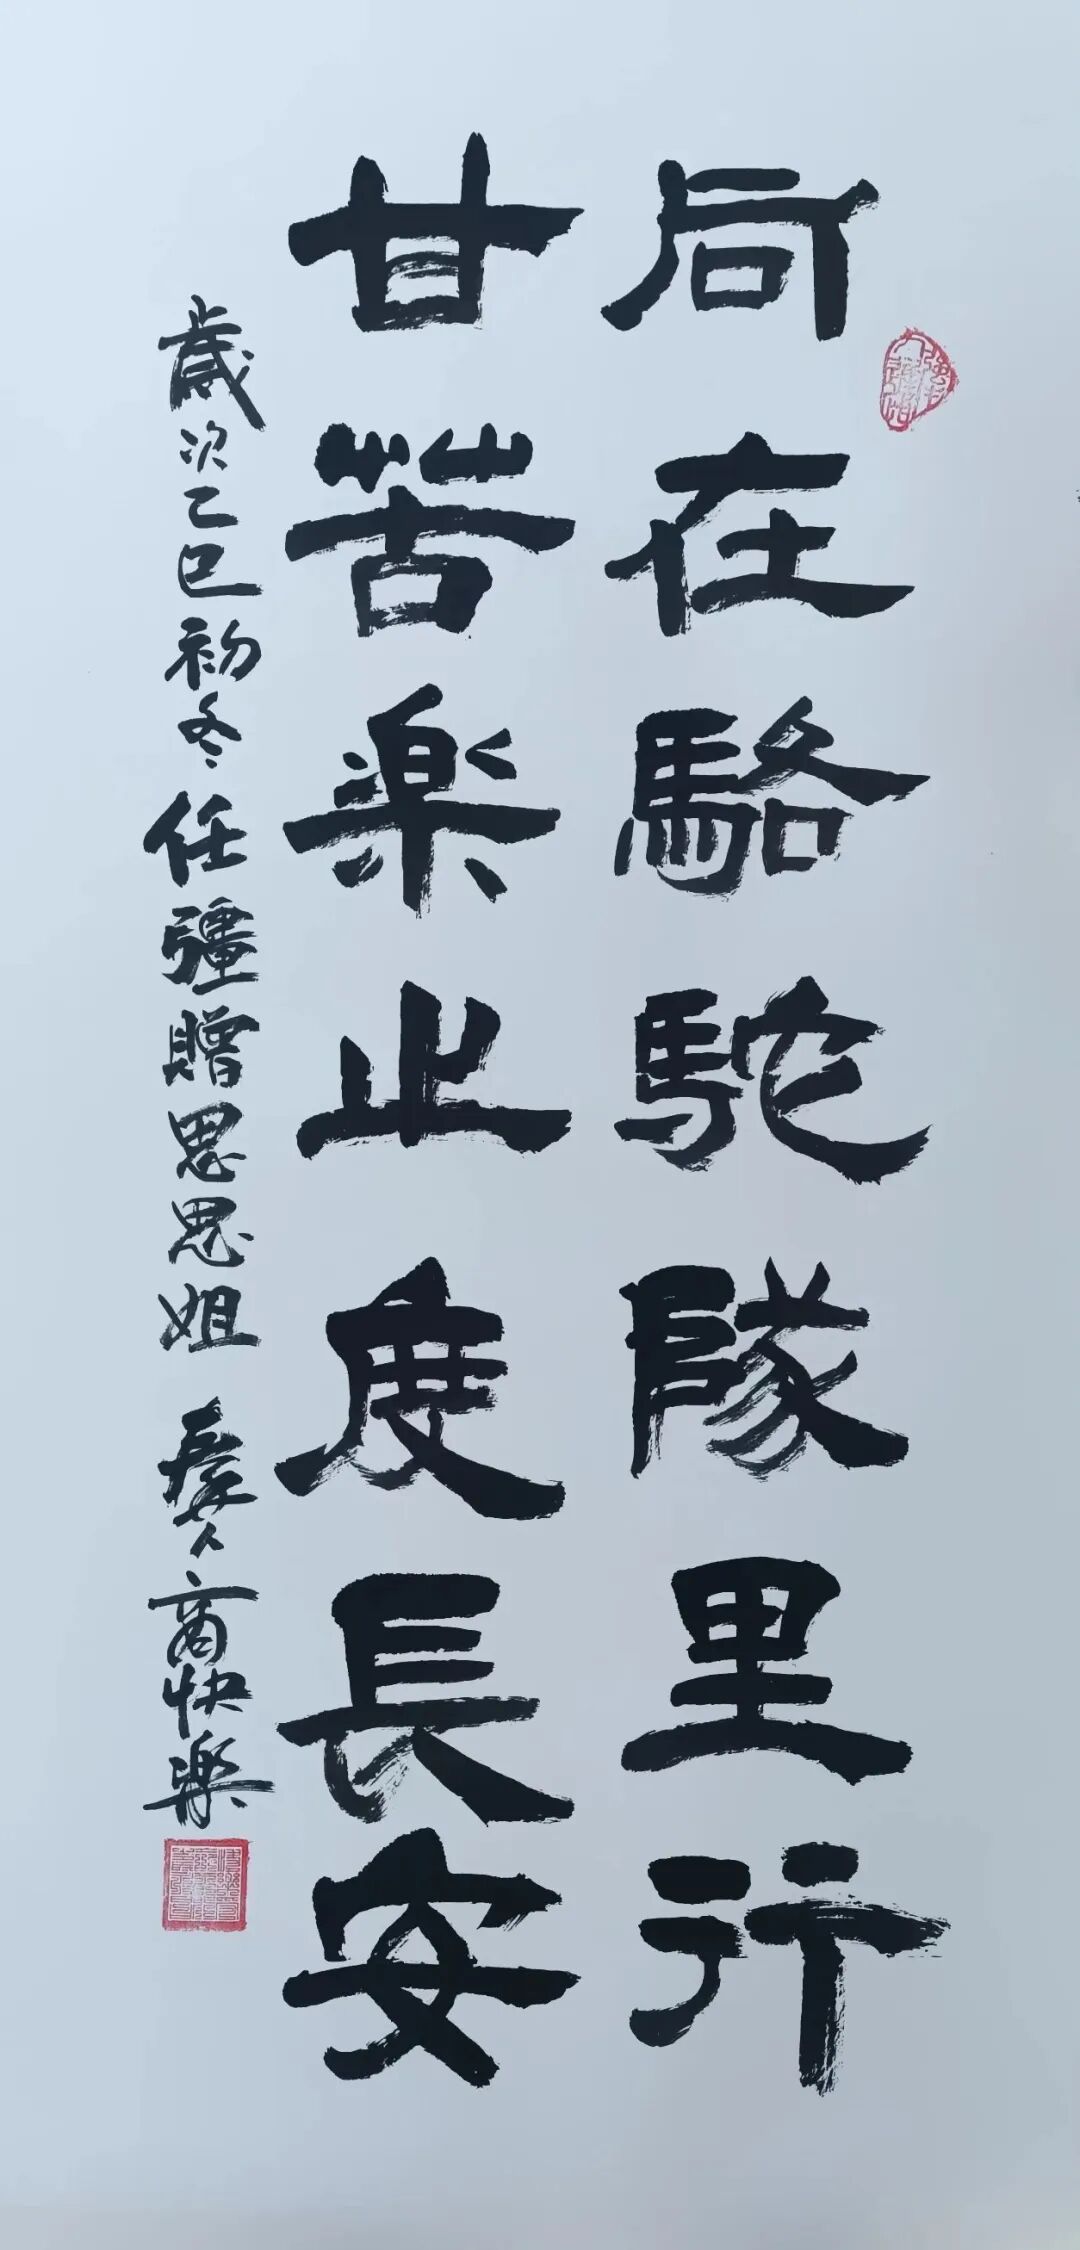 同在駱駝隊里行
甘苦楽止度長安
歲次乙巳初冬任彊贈思思姐 商快楽